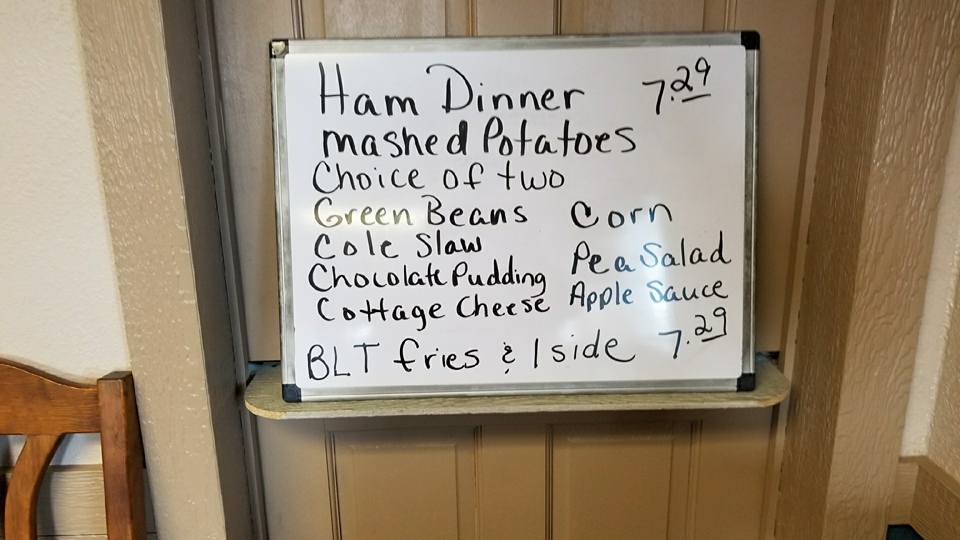 Ham Dinner 7.29
mashed Potatoes
Choice of two
Green Beans Corn
Cole Slaw Pea Salad
Chocolate Pudding Apple Sauce
Cottage Cheese
BLT fries & 1 side 7.29